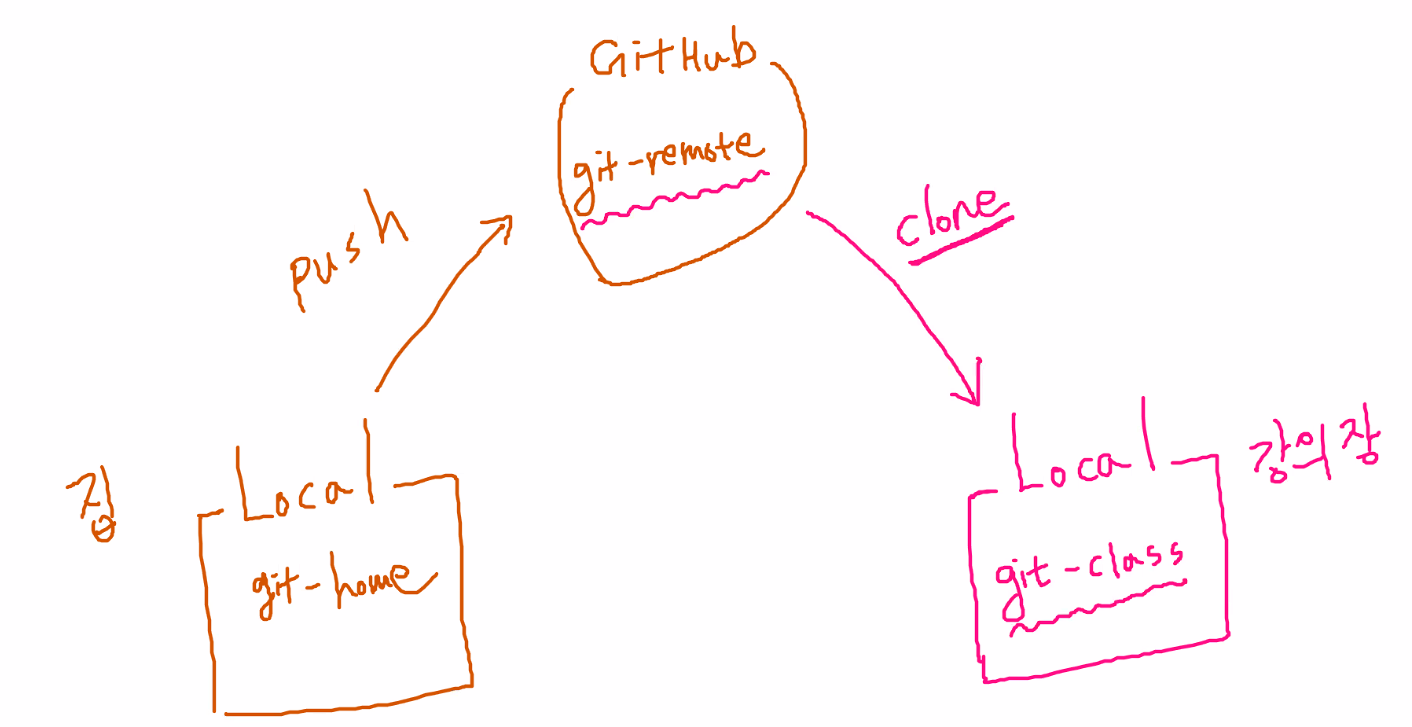 GitHub
git-remote
push
clone
집
Local
git-home
Local
강의장
git-class